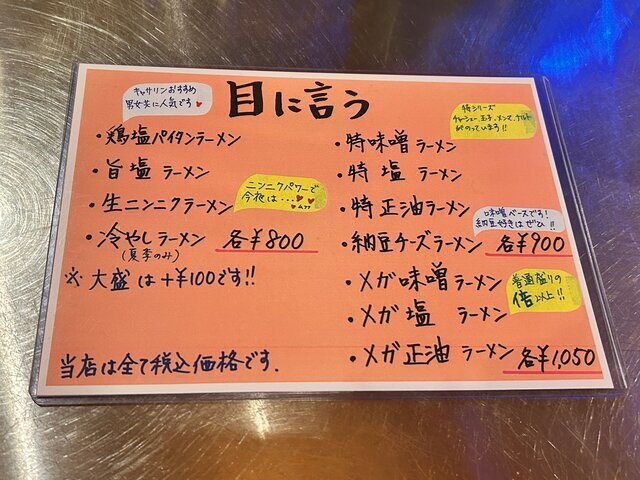 キャサリンおすすめ
男女共に人気です♥
目に言う
特シリーズ
チャーシュー、玉子、メンマ、ナルト
がのっています!!
・鶏塩パイタンラーメン
・旨塩 ラーメン
・生ニンニクラーメン
ニンニクパワーで
今夜は・・・♥♥
・冷やしラーメン
(夏季のみ)
各¥800
※大盛は+¥100です!!
当店は全て税込価格です.
・特味噌ラーメン
・特 塩 ラーメン
・特 正油ラーメン
味噌ベースです!
納豆好きはぜひ!!
・納豆チーズラーメン 各¥900
・メガ味噌ラーメン
・メガ 塩 ラーメン
普通盛りの
倍以上!!
・メガ 正油 ラーメン 各¥1,050